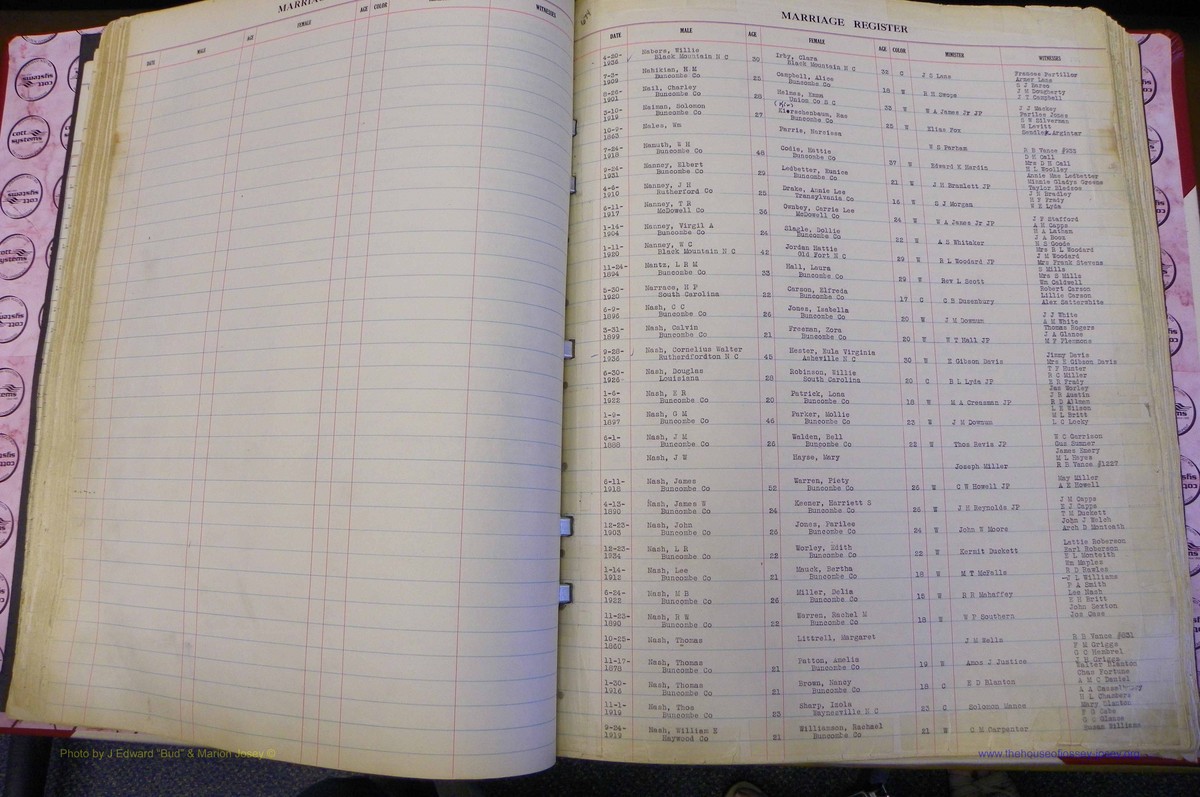 MARRIA
WITNESSES
DATE MALE AGE FEMALE AGE COLOR
MARRIAGE REGISTER
DATE MALE AGE FEMALE AGE COLOR MINISTER WITNESSES
4-20- Nabers, Willie Irby, Clara
Black Mountain N C 30 Black Mountain N C 32 C J S Lane
7-3- Nahikian, H.M Campbell, Alice
1909 Buncombe Co 25 Buncombe Co 18 W R H Swope
8-26- Nail, Charley Haines, Emma
1901 Buncombe Co 28 Union Co S C 33 W W A James Jr JP
Naiman, Solomon
1919 Buncombe Co 27 Buncombe Co 25 W Elias Fox
10-9- Nales, Wm Farris, Narcissa
1863 W S Parham
7-24- Nanuth, W H Codie, Hattie
1918 Buncombe Co 48 Buncombe Co 37 W Edward K Hardin
9-24- Nanney, Elbert Ledbetter, Eunice
1931 Buncombe Co 29 Buncombe Co 21 W J H Bramlett JP
4-6- Nanney, J H Drake, Annie Lee
1910 Rutherford Co 25 Transylvania Co 16 W S J Morgan
6-11- Nanney, T R Carrie Lee
1917 McDowell Co 36 McDowell Co 24 W W A James Jr JP
1-14- Nanney, Virgil A Slagle, Dollie
1904 Buncombe Co 24 Buncombe Co 22 W A S Whitaker
1-11- Nanney, W C Jordan Hattie
1920 Black Mountain N C 42 Old Fort N C 29 W R L Woodard JP
11-24- Nantz, L R M Hall, Laura
1894 Buncombe Co 33 Buncombe Co 29 W Rev L Scott
5-30- Narrace, H P Carson, Elfreda
1920 South Carolina 22 Buncombe Co 17 C C B Dusenbury
6-9- Nash, C C Jones, Isabella
1896 Buncombe Co 26 Buncombe Co 20 W J M Downum
3-31- Nash, Calvin Freeman, Zora
1899 Buncombe Co 21 Buncombe Co 20 W W T Hall JP
9-26- Nash, Cornelius Walter Hester, Eula Virginia
1936 Rutherfordton N C 45 Asheville N C 30 W E Gibson Davis
6-30- Nash, Douglas Robinson, Willie
1926- Louisiana 28 South Carolina 20 C B L Lyda JP
1-6- Nash, E R Patrick, Lona
1922 Buncombe Co 20 Buncombe Co 18 W M A Creasman JP
1-9- Nash, G M Parker, Mollie
1897 Buncombe Co 46 Buncombe Co 23 W J M Downum
6-1- Nash, J M Walden, Bell
1888 Buncombe Co 26 Buncombe Co 22 W Thos Revis JP
Nash, J W Hayse, Mary
Joseph Miller
6-11- Nash, James Warren, Piety
1918 Buncombe Co 52 Buncombe Co 26 W C W Howell JP
4-13- Nash, James W Keener, Harriett S
1890 Buncombe Co 24 Buncombe Co 26 W J H Reynolds JP
12-23- Nash, John Jones, Parilee
1903 Buncombe Co 26 Buncombe Co 24 W John W Moore
12-23- Nash, L R Worley, Edith
1934 Buncombe Co 22 Buncombe Co 22 W Kermit Duckett
1-14- Nash, Lee Mauck, Bertha
1912 Buncombe Co 21 Buncombe Co 18 W M T McFalls
6-24- Nash, M B Miller, Delia
1922 Buncombe Co 26 Buncombe Co 18 W B R Mahaffey
11-23- Nash, R W Warren, Rachel M
1890 Buncombe Co 22 Buncombe Co 18 W W P Southern
10-25- Nash, Thomas Littrell, Margaret
1860 J M Wells
11-17- Nash, Thomas Patton, Amelia
1878 Buncombe Co 21 Buncombe Co 19 W Amos J Justice
1-30- Nash, Thomas Brown, Nancy
1916 Buncombe Co 21 Buncombe Co 18 C E D Blanton
11-1- Nash, Thos Sharp, Isola
1919 Buncombe Co 23 Waynesville N C 23 C Solomon Mance
9-24- Nash, William E Williamson, Rachael
1919 Haywood Co 21 Buncombe Co 21 W C M Carpenter
J M Dougherty
J T Campbell
Parilee Jones
S W Silverman
R B Vance #933
D H Call
Mrs D H Call
H L Woolley
Annie Mae Ledbetter
Minnie Gladys Greene
Taylor Bledsoe
J S Bradley
H F Frady
W E Lyda
J F Stafford
A H Capps
H A Latham
Mrs R L Woodard
J M Woodard
Mrs Frank Stevens
S Mills
Mrs S Mills
Wm Caldwell
Robert Carson
Lillie Carson
Alex Satterwhite
J J White
A M White
Thomas Rogers
J A Glance
M F Plemmons
Jimmy Davis
Mrs E Gibson Davis
T P Hunter
R C Miller
E R Frady
Jas Worley
J R Austin
L E Wilson
M L Britt
L C Lecky
W C Garrison
Gus Sumner
James Emery
M L Hayes
R B Vance #1227
May Miller
A E Howell
J M Capps
E J Capps
T M Duckett
John J Welch
Arch D Monteath
Lettie Roberson
Earl Roberson
E L Monteith
Wm Maples
R D Rawles
J L Williams
P A Smith
Lee Nash
E H Britt
John Sexton
Joe Case
R B Vance #831
P M Griggs
Walter Blanton
Chas Fortune
A M C Daniel
H L Chambers
Susan Williams
cott systems
Photo by J Edward "Bud" & Marion Josey ©
www.thehouseofjossey-josey.org